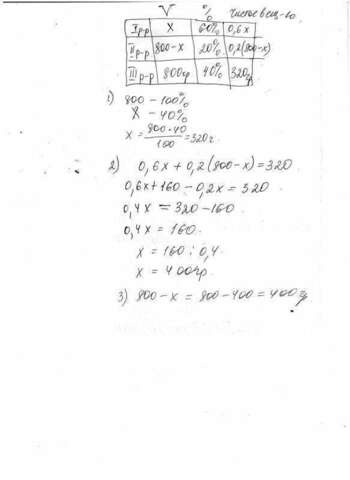 V % Чистое вещ-во
I р-р X 60% 0,6x
II р-р 800-x 20% 0,2(800-x)
III р-р 800гр 40% 320гр
1) 800 – 100%
X – 40%
x = 800·40/100 = 320г.
2) 0,6x + 0,2(800-x) = 320
0,6x + 160 – 0,2x = 320
0,4x = 320 – 160
0,4x = 160.
x = 160 : 0,4
x = 400гр
3) 800 – x = 800 – 400 = 400